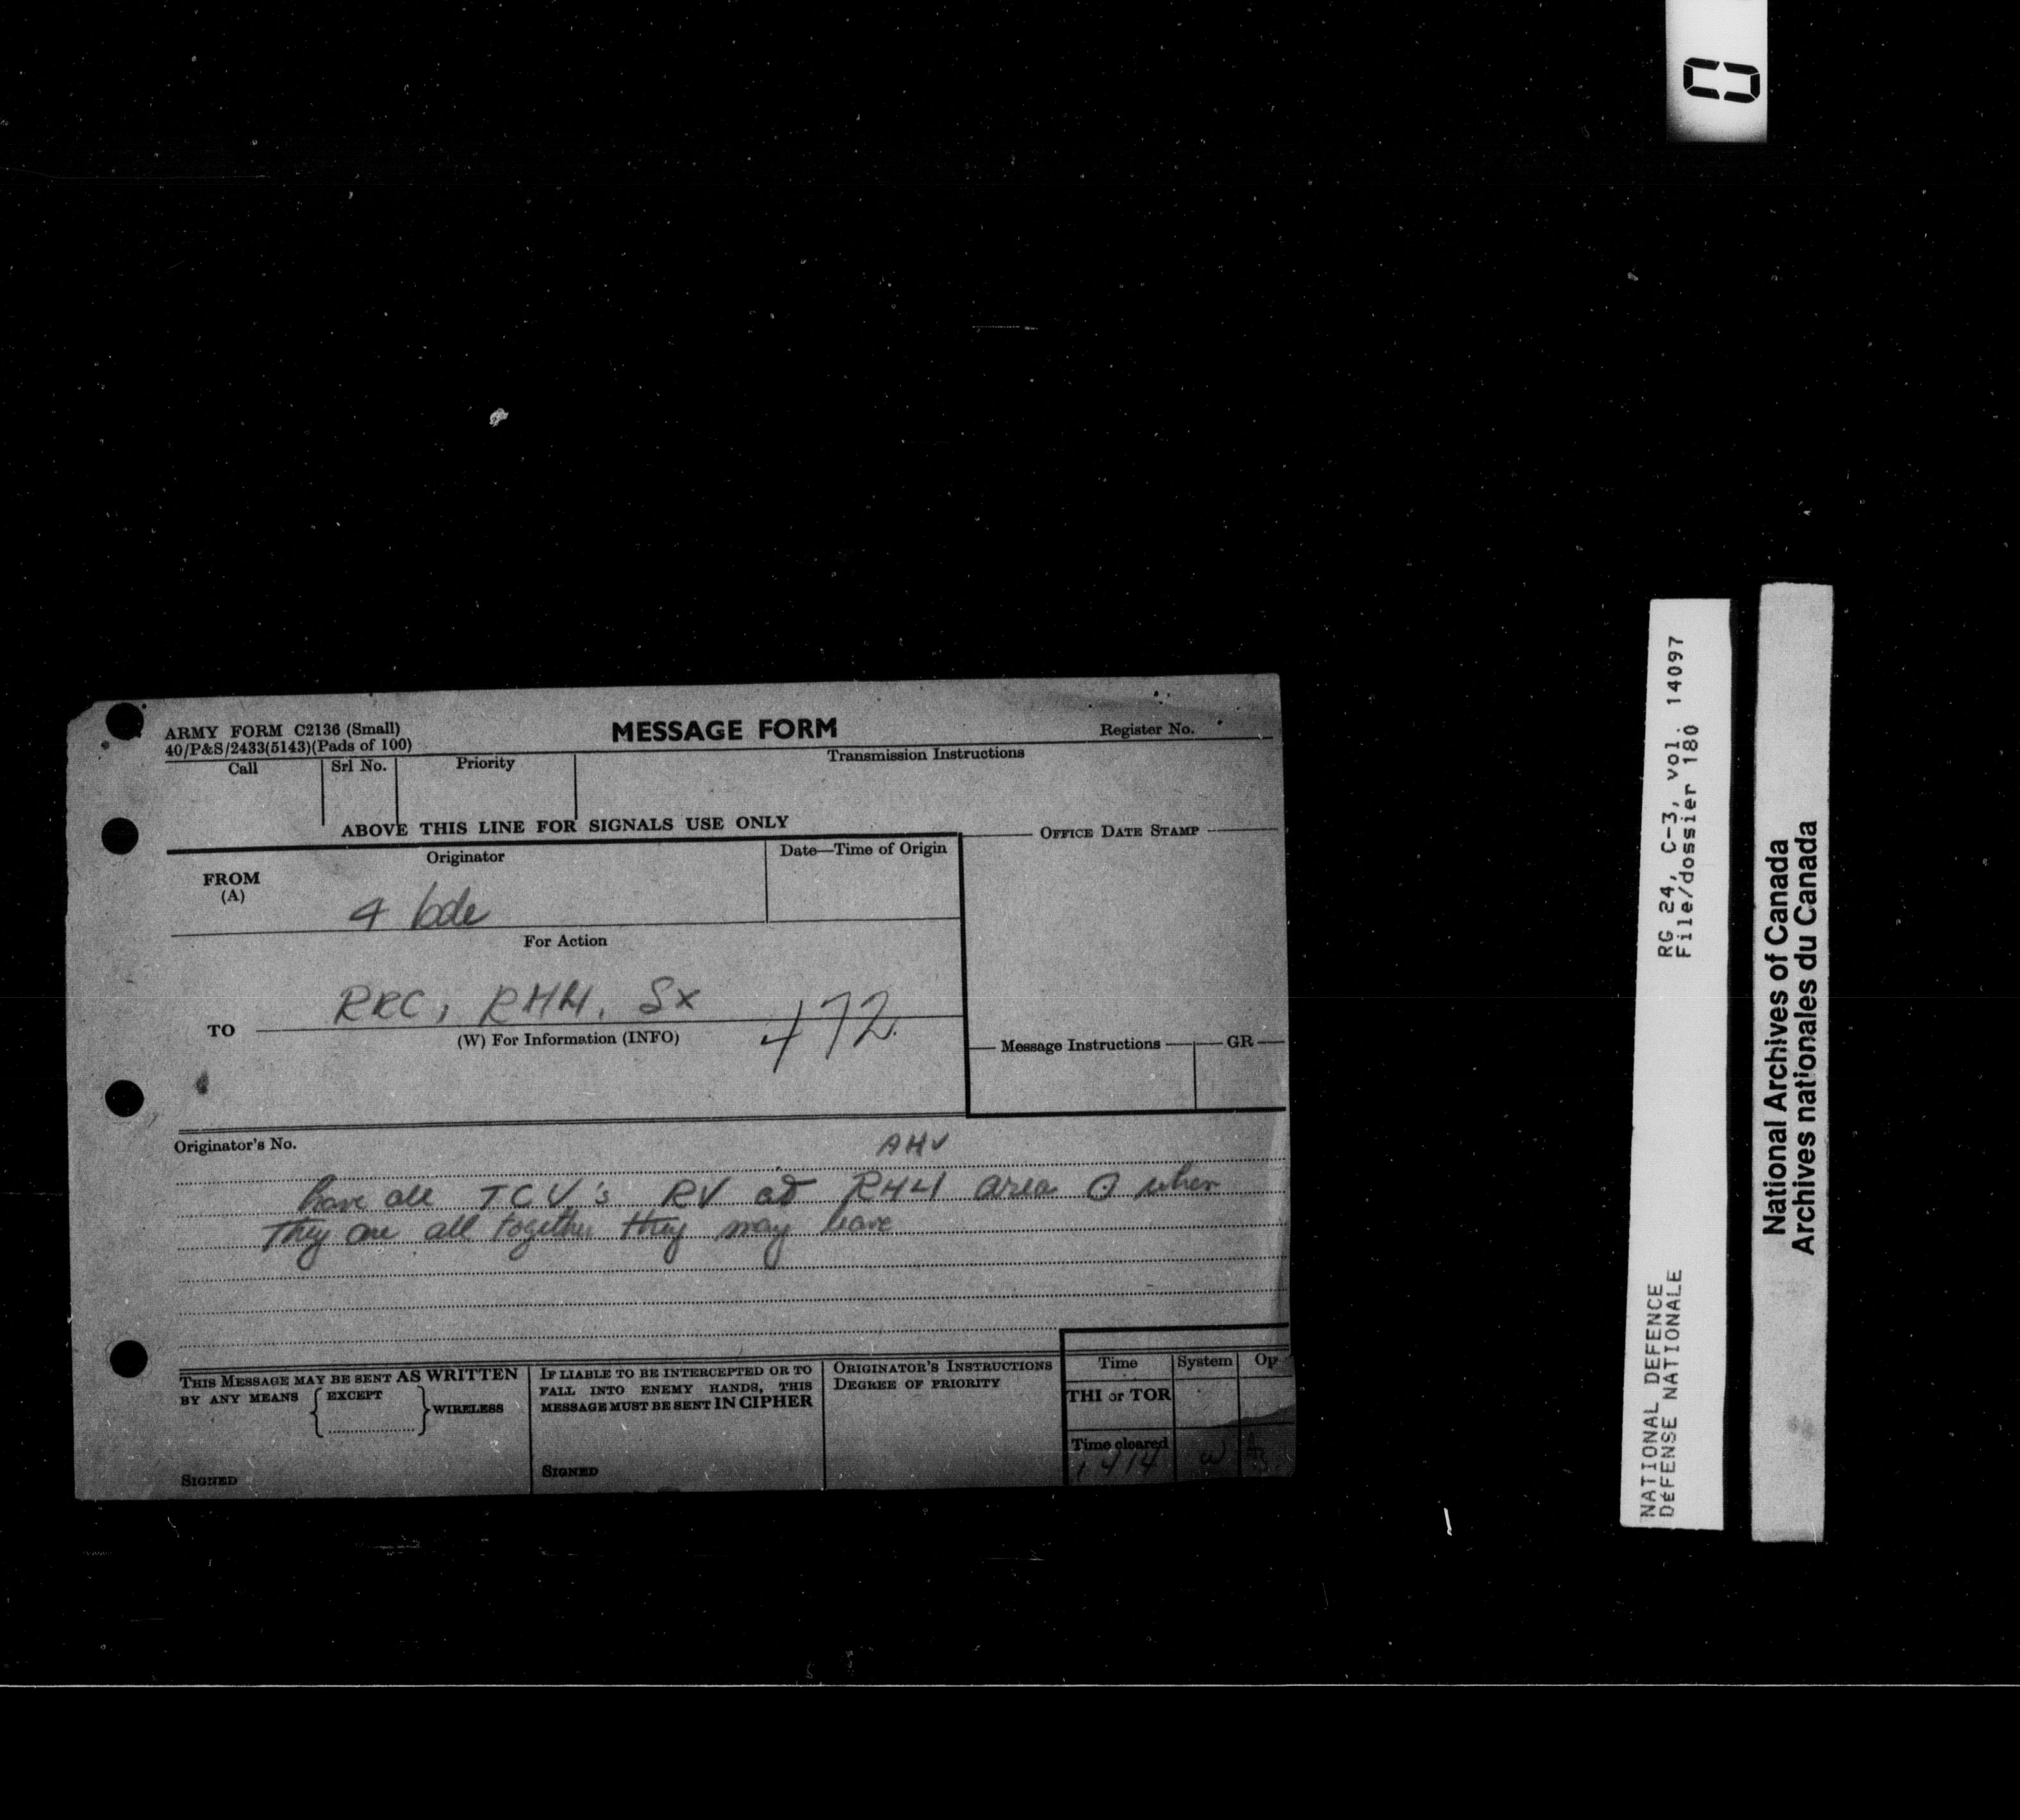 ARMY FORM C2136 (Small)
40/P&S/2433(5143)(Pads of 100)
MESSAGE FORM
Register No.
Call
Srl No.
Priority
Transmission Instructions
ABOVE THIS LINE FOR SIGNALS USE ONLY
OFFICE DATE STAMP
FROM
(A)
Originator
Date—Time of Origin
4 bde
For Action
RRC, RHLI, Sx
472
TO
(W) For Information (INFO)
Message Instructions
GR
Originator's No.
have all TCV's RV at RHLI area O when
They are all together they may leave
THIS MESSAGE MAY BE SENT AS WRITTEN
BY ANY MEANS
EXCEPT
WIRELESS
SIGNED
IF LIABLE TO BE INTERCEPTED OR TO
FALL INTO ENEMY HANDS, THIS
MESSAGE MUST BE SENT IN CIPHER
SIGNED
ORIGINATOR'S INSTRUCTIONS
DEGREE OF PRIORITY
Time
System
Op
THI or TOR
Time cleared
1414
W
RG 24, C-3, vol. 14097
File/dossier 180
NATIONAL DEFENCE
DéFENSE NATIONALE
National Archives of Canada
Archives nationales du Canada